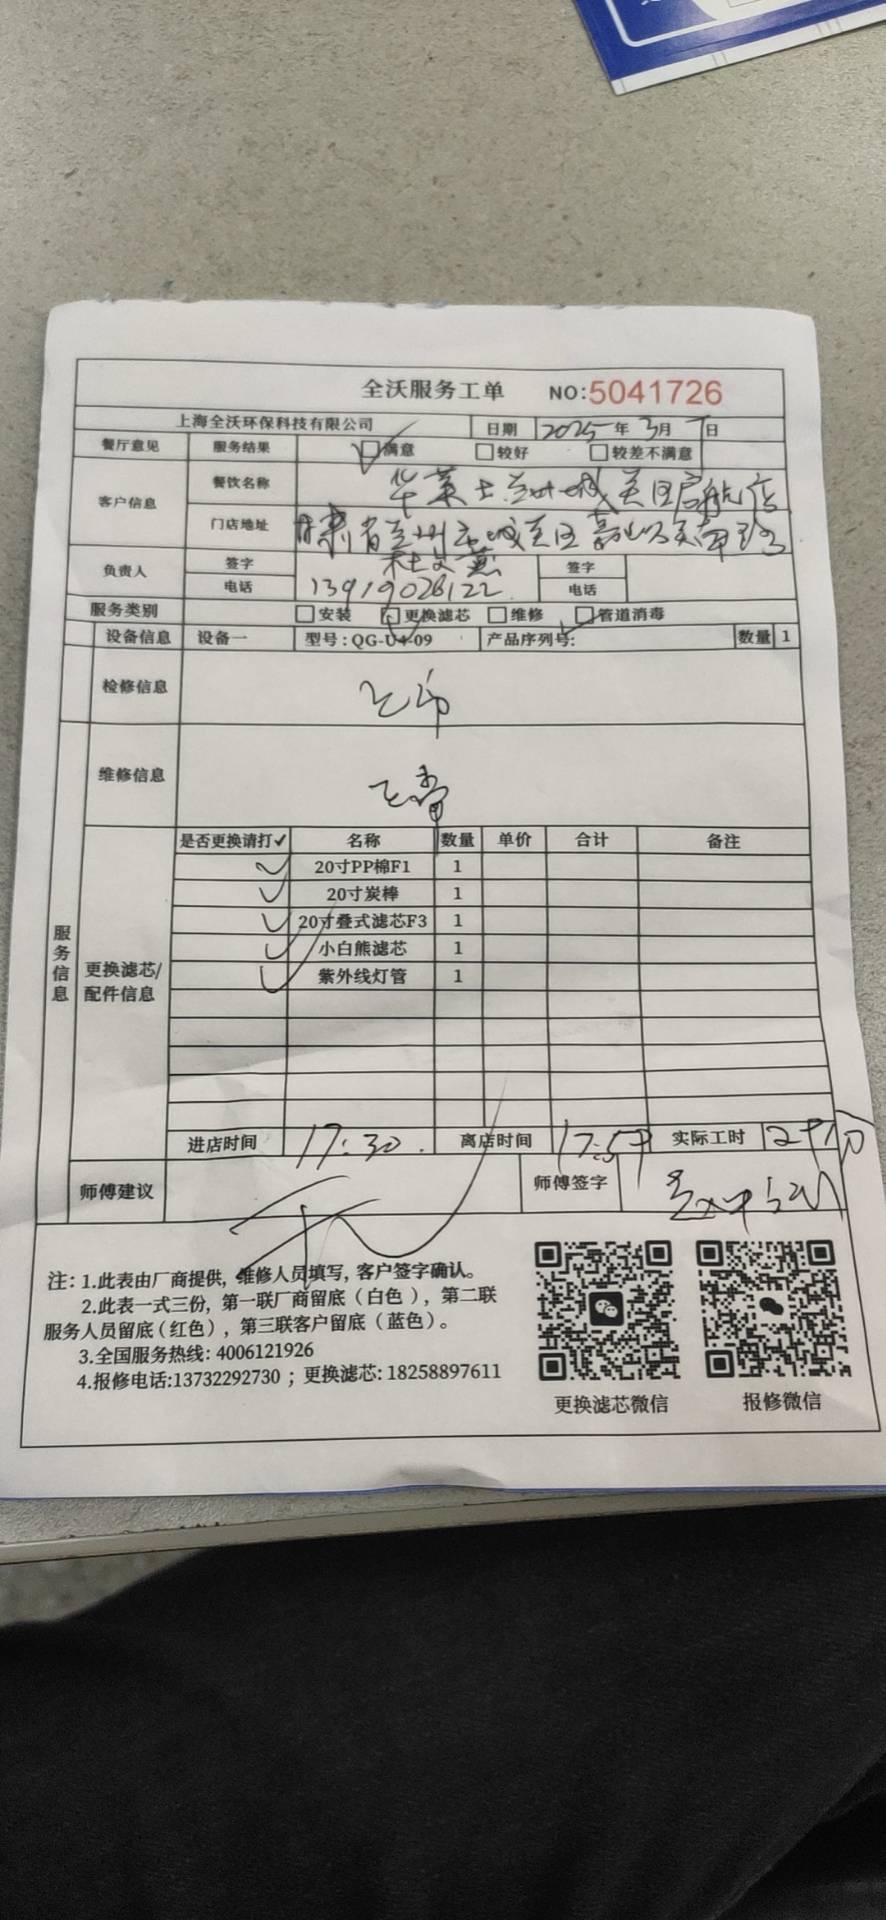 全沃服务工单 NO:5041726
上海全沃环保科技有限公司 日期 2025年3月7日
餐厅意见 服务结果 满意 较好 较差不满意
客户信息 餐饮名称 华莱士兰州城关区启航店
门店地址 甘肃省兰州市城关区嘉峪关南路
负责人 签字 签字
电话 13919026122 电话
服务类别 安装 更换滤芯 维修 管道消毒
设备信息 设备一 型号:QG-U4-09 产品序列号: 数量 1
检修信息
维修信息
服务信息
更换滤芯/配件信息
是否更换请打✓ 名称 数量 单价 合计 备注
✓ 20寸PP棉F1 1
✓ 20寸炭棒 1
✓ 20寸叠式滤芯F3 1
✓ 小白熊滤芯 1
✓ 紫外线灯管 1
进店时间 17:30 离店时间 17:57 实际工时
师傅建议 无 师傅签字
注:1.此表由厂商提供,维修人员填写,客户签字确认。
2.此表一式三份,第一联厂商留底(白色),第二联
服务人员留底(红色),第三联客户留底(蓝色)。
3.全国服务热线:4006121926
4.报修电话:13732292730;更换滤芯:18258897611
更换滤芯微信 报修微信